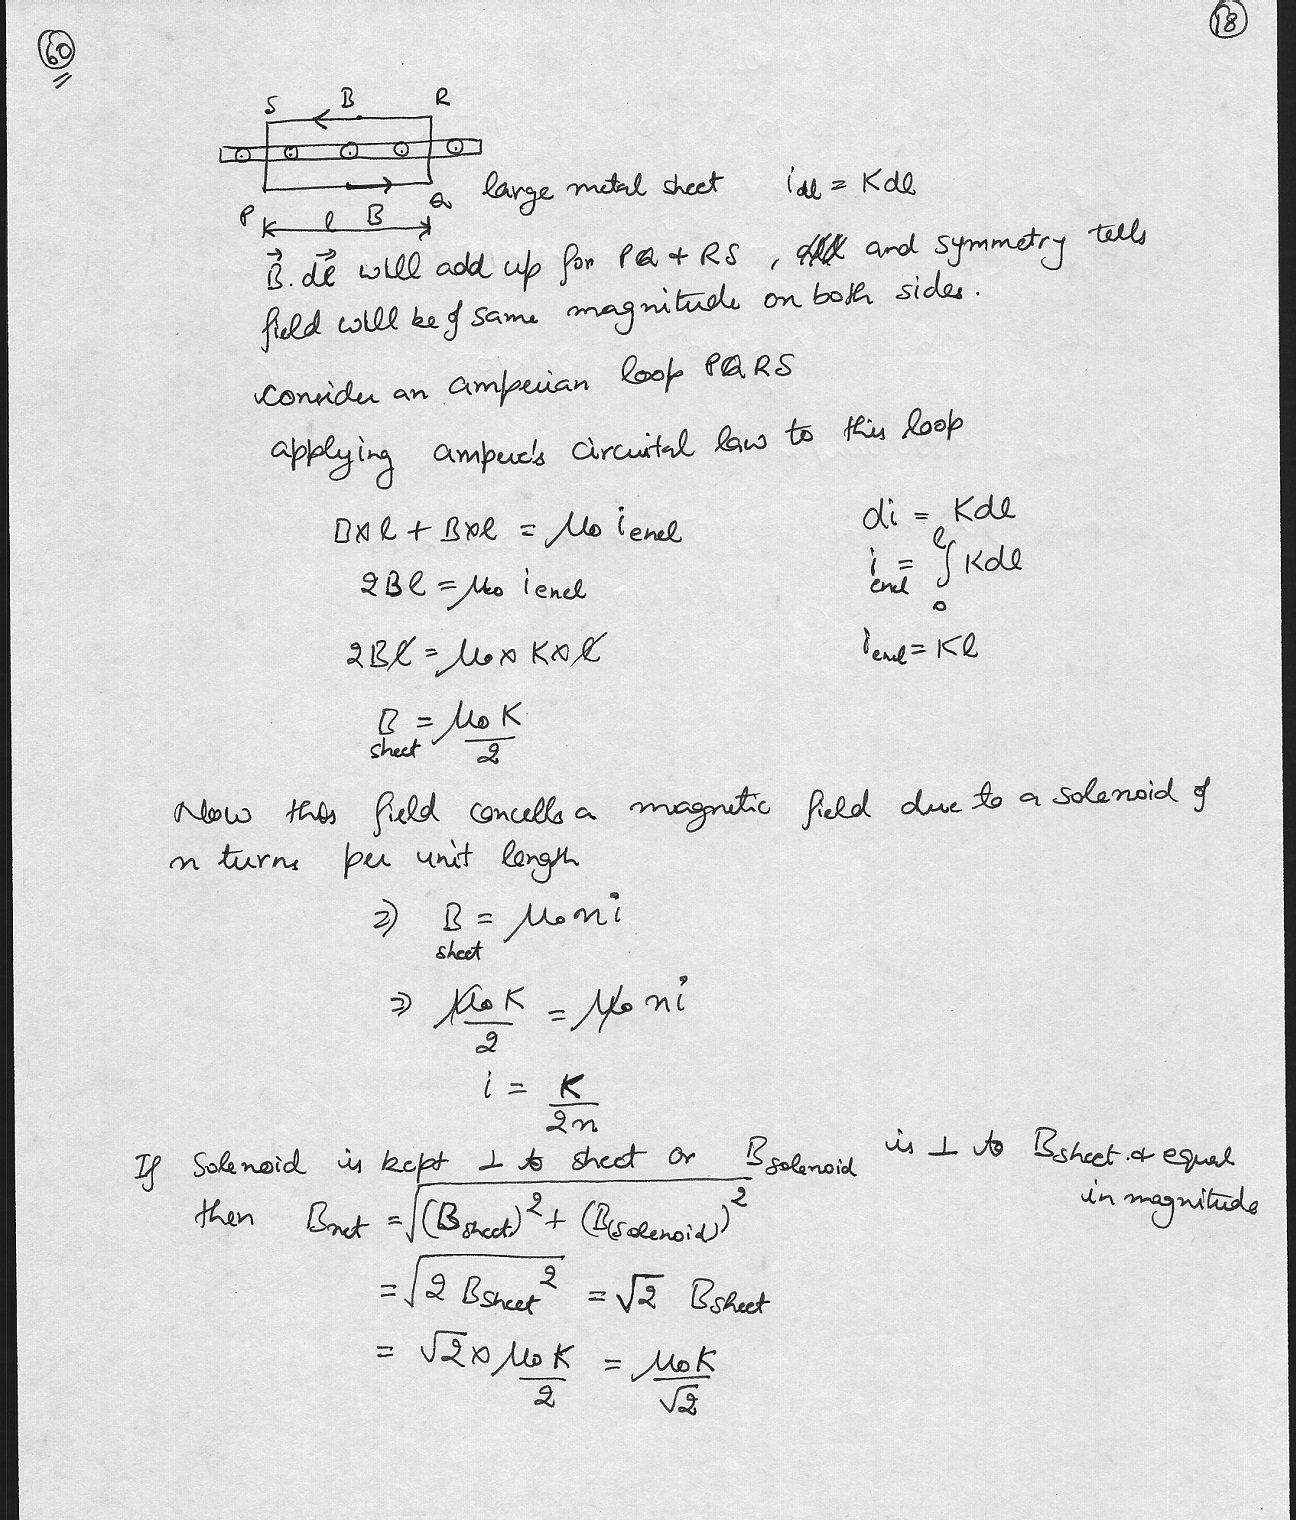 60
18
S B R
P l B Q
large metal sheet i_dl = Kdl
B⃗.dl⃗ will add up for PQ + RS , and symmetry tells
field will be of same magnitude on both sides.
Consider an amperian loop PQRS
applying ampere's circuital law to this loop
B×l + B×l = μ₀ i encl
di = Kdl
2Bl = μ₀ i encl
i encl = ∫₀ˡ Kdl
2Bl = μ₀ × K × l
i encl = Kl
B sheet = μ₀K/2
Now this field cancells a magnetic field due to a solenoid of
n turns per unit length
⇒ B sheet = μ₀ n i
⇒ μ₀K/2 = μ₀ n i
i = K/2n
If Solenoid is kept ⊥ to sheet or B solenoid is ⊥ to B sheet & equal
in magnitude
then B net = √((B sheet)² + (B solenoid)²)
= √(2 B sheet²) = √2 B sheet
= √2 × μ₀K/2 = μ₀K/√2